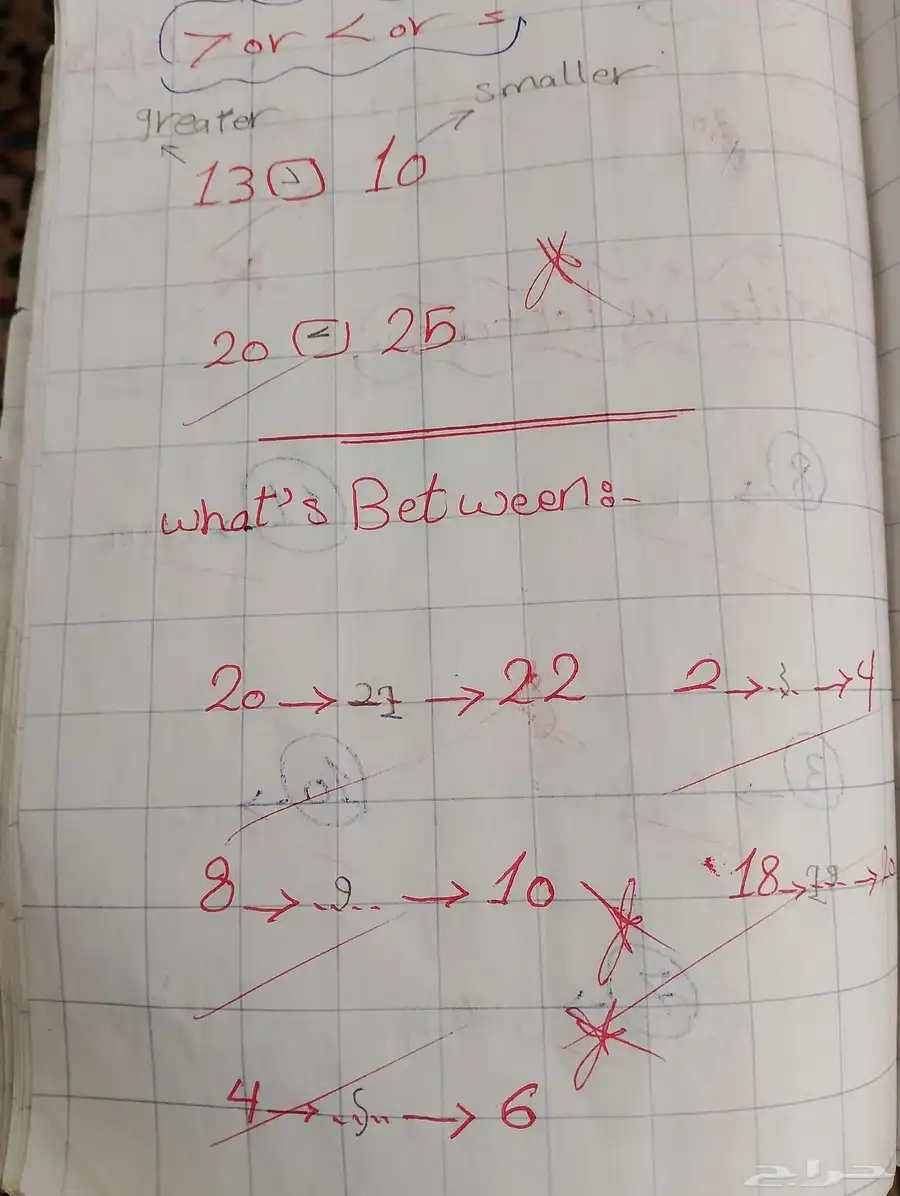 > or < or =
greater
smaller
13 > 10
20 < 25
what's Between:-
20 → 21 → 22
2 → 3 → 4
8 → 9 → 10
18 → 19 →
4 → 5 → 6
حراج